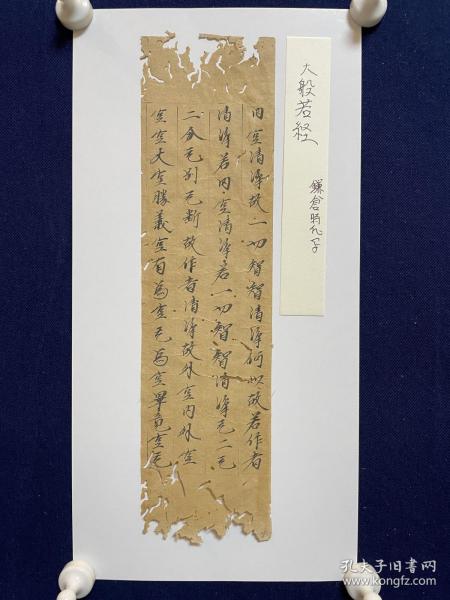 大般若経
鎌倉時代写
内空清淨故一切智智清淨何以故若作者
清淨若内空清淨若一切智智清淨无二无
二分无別无斷故作者清淨故外空内外空
空空大空勝義空有為空无為空畢竟空无
孔夫子旧书网
www.kongfz.com